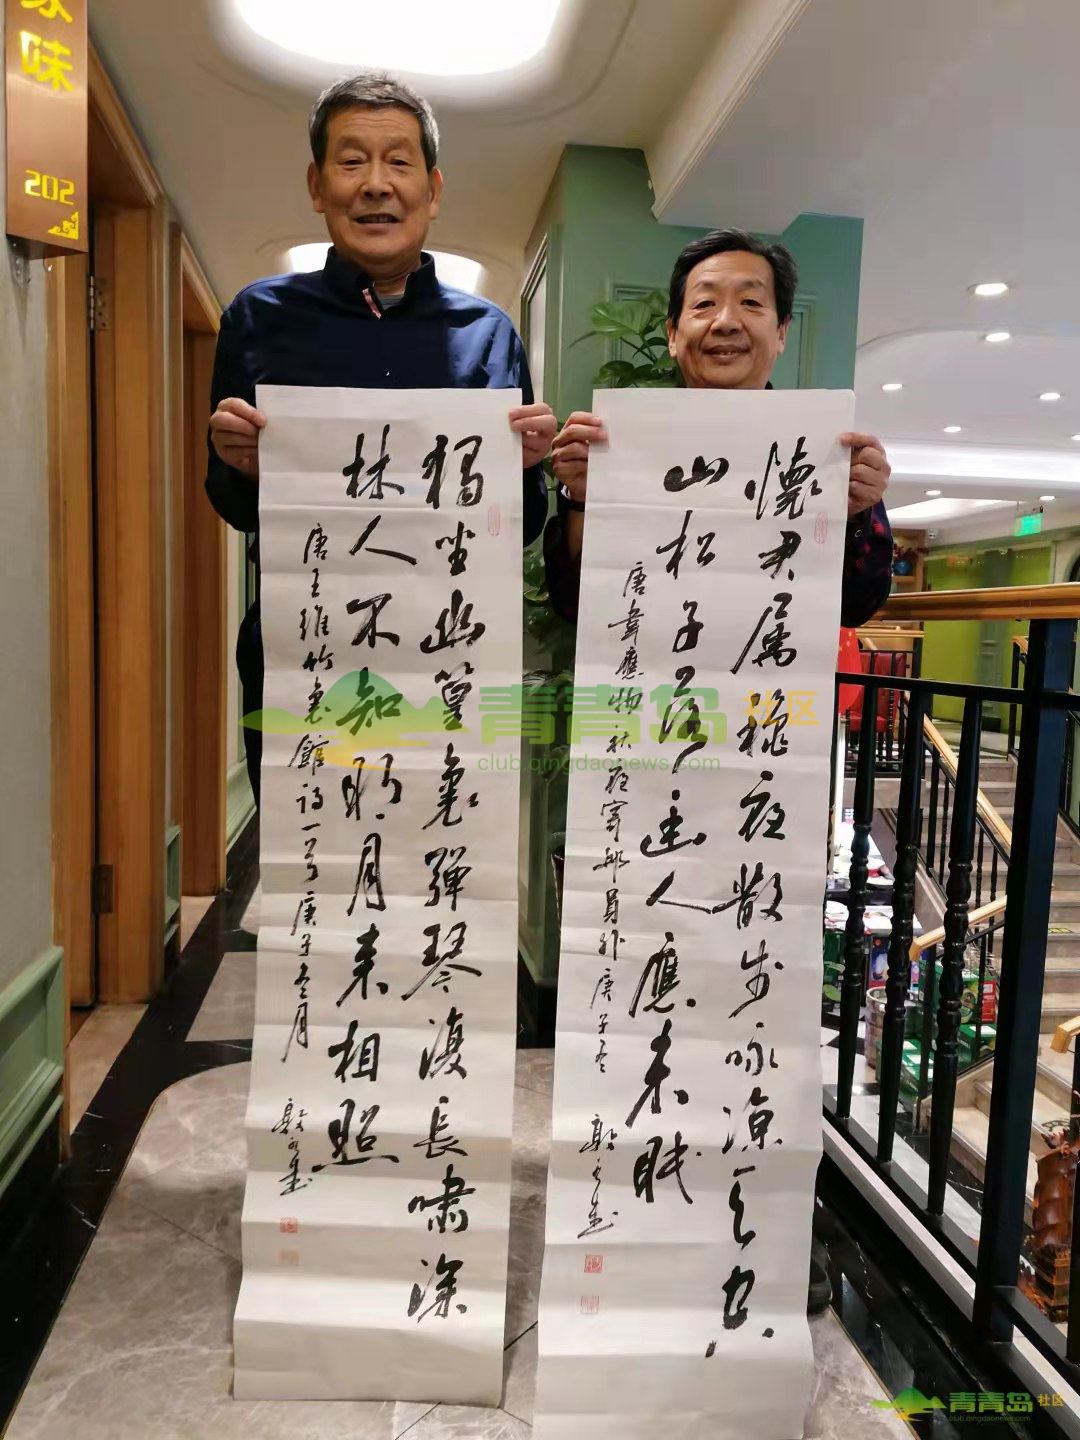 味
202
獨坐幽篁裏彈琴復長嘯深
林人不知明月来相照
唐王維竹裏館詩一首庚子冬月
懷君屬穐夜散步咏涼天空
山松子落幽人應未眠
唐韋應物秋夜寄邱員外庚子冬
青青岛社区
club.qingdaonews.com
青青岛社区
club.qingdaonews.com